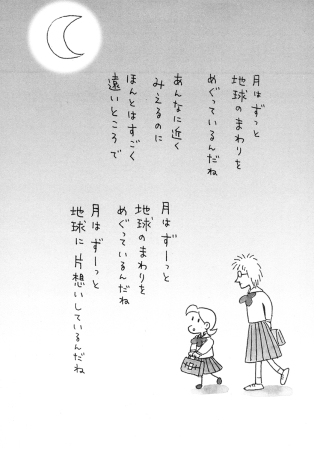 月はずっと
地球のまわりを
めぐっているんだね
あんなに近く
みえるのに
ほんとはすごく
遠いところで
月はずーっと
地球のまわりを
めぐっているんだね
月はずーっと
地球に片想いしているんだね